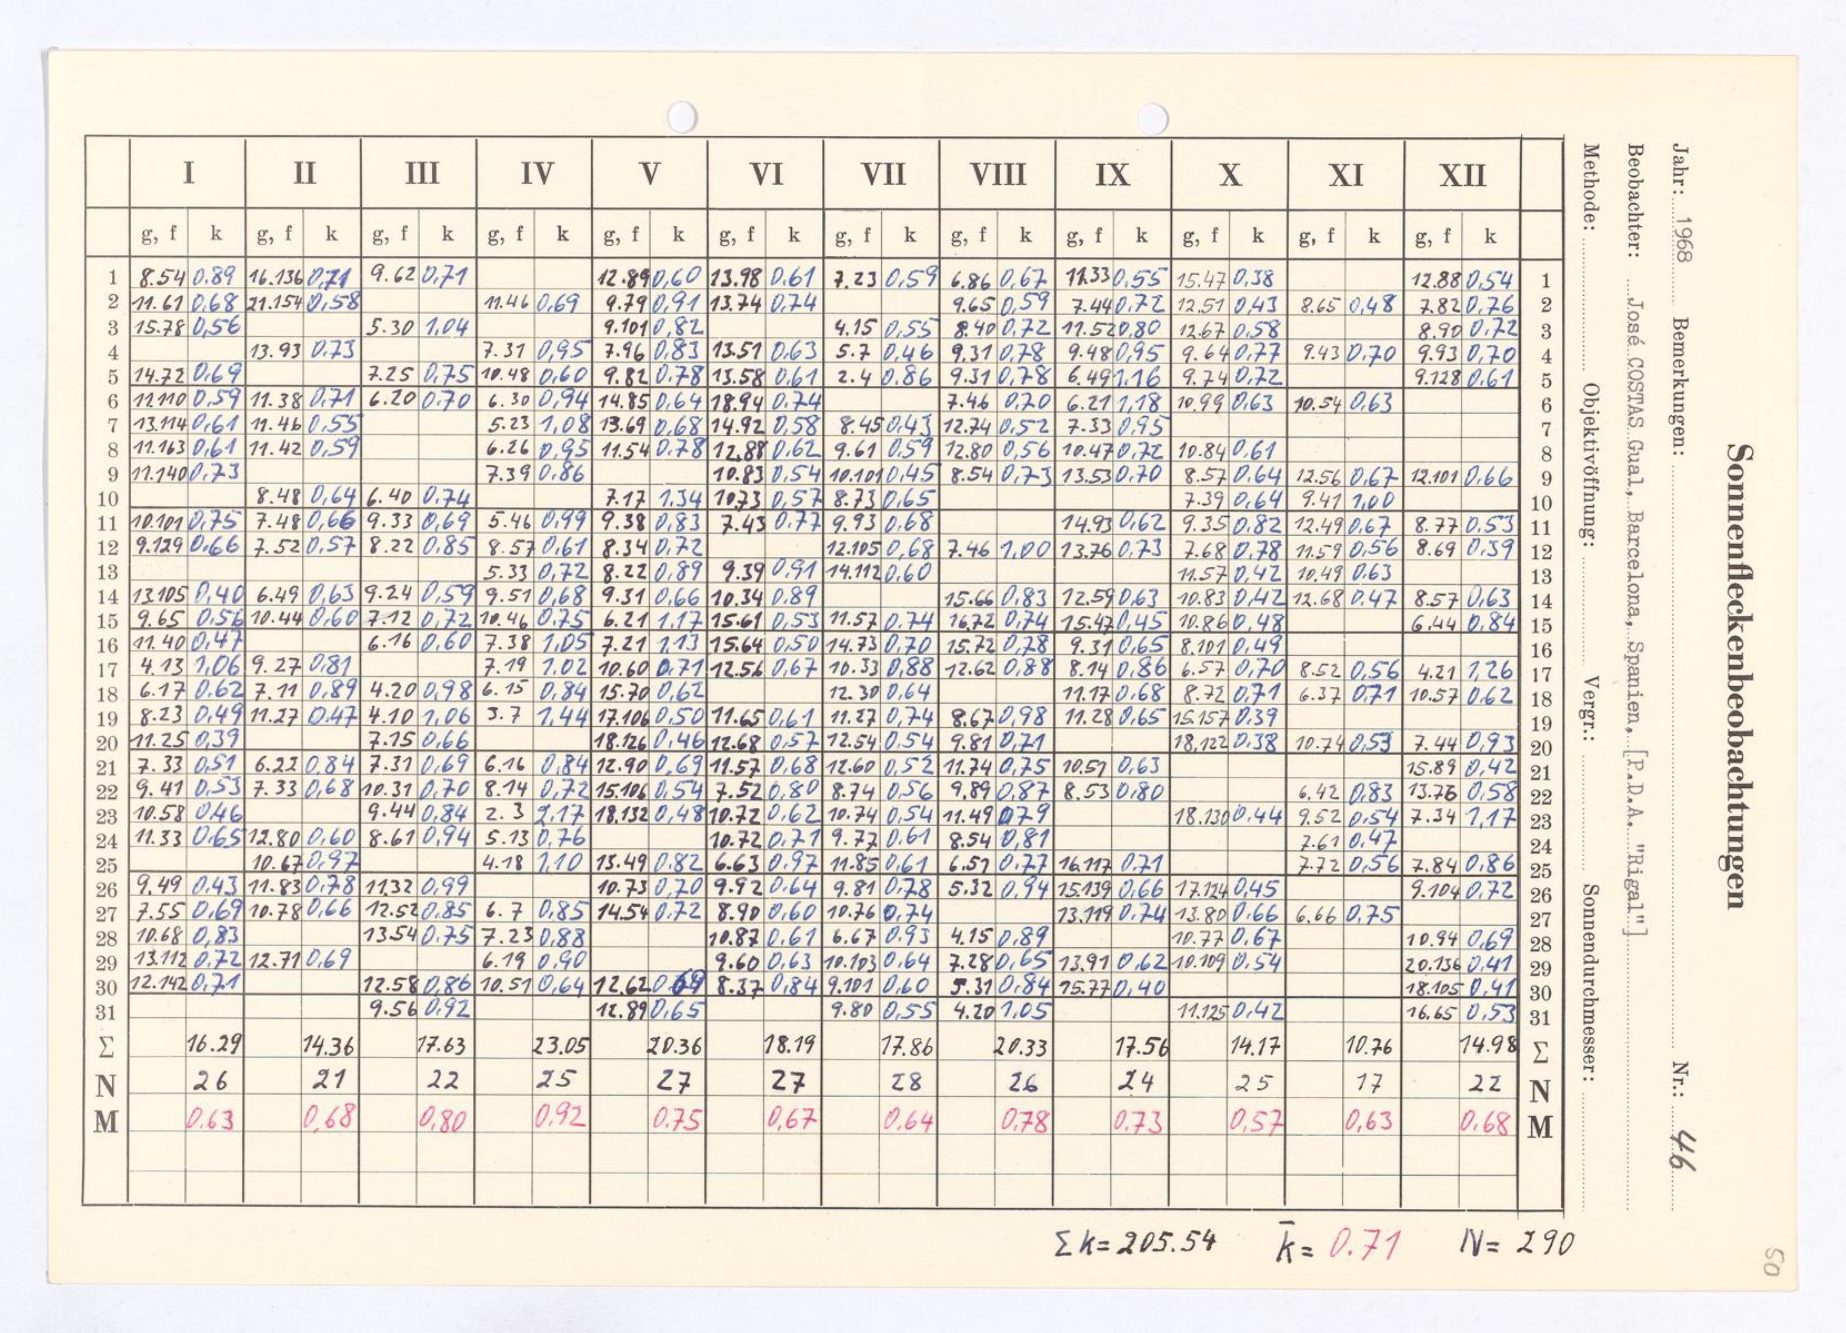 I II III IV V VI VII VIII IX X XI XII
g, f k g, f k g, f k g, f k g, f k g, f k g, f k g, f k g, f k g, f k g, f k g, f k
1 8.54 0.89 16.136 0,71 9.62 0,71 12.89 0,60 13.98 0,61 7.23 0,59 6.86 0,67 11.33 0,55 15.47 0,38 12.88 0,54 1
2 11.61 0,68 21.154 0,58 11.46 0,69 9.79 0,91 13.74 0,74 9.65 0,59 7.44 0,72 12.51 0,43 8.65 0,48 7.82 0,76 2
3 15.78 0,56 5.30 1,04 9.101 0,82 4.15 0,55 8.40 0,72 11.52 0,80 12.67 0,58 8.90 0,72 3
4 13.93 0,73 7.31 0,95 7.96 0,83 13.51 0,63 5.7 0,46 9.31 0,78 9.48 0,95 9.64 0,77 9.43 0,70 9.93 0,70 4
5 14.72 0,69 7.25 0,75 10.48 0,60 9.82 0,78 13.58 0,61 2.4 0,86 9.31 0,78 6.49 1,16 9.74 0,72 9.128 0,61 5
6 11.110 0,59 11.38 0,71 6.20 0,70 6.30 0,94 14.85 0,64 18.94 0,74 7.46 0,70 6.21 1,18 10.99 0,63 10.54 0,63 6
7 13.114 0,61 11.46 0,55 5.23 1,08 13.69 0,68 14.92 0,58 8.45 0,43 12.74 0,52 7.33 0,95 7
8 11.163 0,61 11.42 0,59 6.26 0,95 11.54 0,78 12.88 0,62 9.61 0,59 12.80 0,56 10.47 0,72 10.84 0,61 8
9 11.140 0,73 7.39 0,86 10.83 0,54 10.101 0,45 8.54 0,73 13.53 0,70 8.57 0,64 12.56 0,67 12.101 0,66 9
10 8.48 0,64 6.40 0,74 7.17 1,34 10.73 0,57 8.73 0,65 7.39 0,64 9.41 1,00 10
11 10.101 0,75 7.48 0,66 9.33 0,69 5.46 0,99 9.38 0,83 7.43 0,77 9.93 0,68 14.93 0,62 9.35 0,82 12.49 0,67 8.77 0,53 11
12 9.129 0,66 7.52 0,57 8.22 0,85 8.57 0,61 8.34 0,72 12.105 0,68 7.46 1,00 13.76 0,73 7.68 0,78 11.59 0,56 8.69 0,39 12
13 5.33 0,72 8.22 0,89 9.39 0,91 14.112 0,60 11.57 0,42 10.49 0,63 13
14 13.105 0,40 6.49 0,63 9.24 0,59 9.51 0,68 9.31 0,66 10.34 0,89 15.66 0,83 12.59 0,63 10.83 0,42 12.68 0,47 8.57 0,63 14
15 9.65 0,56 10.44 0,60 7.12 0,72 10.46 0,75 6.21 1,17 15.61 0,53 11.57 0,74 16.72 0,74 15.47 0,45 10.86 0,48 6.44 0,84 15
16 11.40 0,47 6.16 0,60 7.38 1,05 7.21 1,13 15.64 0,50 14.73 0,70 15.72 0,78 9.31 0,65 8.101 0,49 16
17 4.13 1,06 9.27 0,81 7.19 1,02 10.60 0,71 12.56 0,67 10.33 0,88 12.62 0,88 8.14 0,86 6.57 0,70 8.52 0,56 4.21 1,26 17
18 6.17 0,62 7.11 0,89 4.20 0,98 6.15 0,84 15.70 0,62 12.30 0,64 11.17 0,68 8.72 0,71 6.37 0,71 10.57 0,62 18
19 8.23 0,49 11.27 0,47 4.10 1,06 3.7 1,44 17.106 0,50 11.65 0,61 11.27 0,74 8.67 0,98 11.28 0,65 15.157 0,39 19
20 11.25 0,39 7.15 0,66 18.126 0,46 12.68 0,57 12.54 0,54 9.81 0,71 18,122 0,38 10.74 0,53 7.44 0,93 20
21 7.33 0,51 6.22 0,84 7.31 0,69 6.16 0,84 12.90 0,69 11.57 0,68 12.60 0,52 11.74 0,75 10.51 0,63 15.89 0,42 21
22 9.41 0,53 7.33 0,68 10.31 0,70 8.14 0,72 15.106 0,54 7.52 0,80 8.74 0,56 9.89 0,87 8.53 0,80 6.42 0,83 13.76 0,58 22
23 10.58 0,46 9.44 0,84 2.3 2,17 18.132 0,48 10.72 0,62 10.74 0,54 11.49 0,79 18.130 0,44 9.52 0,54 7.34 1,17 23
24 11.33 0,65 12.80 0,60 8.61 0,94 5.13 0,76 10.72 0,71 9.77 0,61 8.54 0,81 7.61 0,47 24
25 10.67 0,97 4.18 1,10 13.49 0,82 6.63 0,97 11.85 0,61 6.51 0,77 16.117 0,71 7.72 0,56 7.84 0,86 25
26 9.49 0,43 11.83 0,78 11.32 0,99 10.73 0,70 9.92 0,64 9.81 0,78 5.32 0,94 15.139 0,66 17.124 0,45 9.104 0,72 26
27 7.55 0,69 10.78 0,66 12.52 0,85 6.7 0,85 14.54 0,72 8.90 0,60 10.76 0,74 13.119 0,74 13.80 0,66 6.66 0,75 27
28 10.68 0,83 13.54 0,75 7.23 0,88 10.87 0,61 6.67 0,93 4.15 0,89 10.77 0,67 10.94 0,69 28
29 13.112 0,72 12.71 0,69 6.19 0,90 9.60 0,63 10.103 0,64 7.28 0,65 13.91 0,62 10.109 0,54 20.136 0,41 29
30 12.142 0,71 12.58 0,86 10.51 0,64 12.62 0,69 8.37 0,84 9.101 0,60 5.31 0,84 15.77 0,40 18.105 0,41 30
31 9.56 0,92 12.89 0,65 9.80 0,55 4.20 1,05 11.125 0,42 16.65 0,53 31
Σ 16.29 14.36 17.63 23.05 20.36 18.19 17.86 20.33 17.56 14.17 10.76 14.98 Σ
N 26 21 22 25 27 27 28 26 24 25 17 22 N
M 0.63 0,68 0,80 0,92 0.75 0,67 0.64 0,78 0.73 0,57 0,63 0,68 M
Σk= 205.54 k̄= 0.71 N= 290
Sonnenfleckenbeobachtungen
Jahr: 1968 Bemerkungen: Nr.: 46
Beobachter: José COSTAS Gual, Barcelona, Spanien, [P.D.A. "Rigal"]
Methode: Objektivöffnung: Vergr.: Sonnendurchmesser:
50